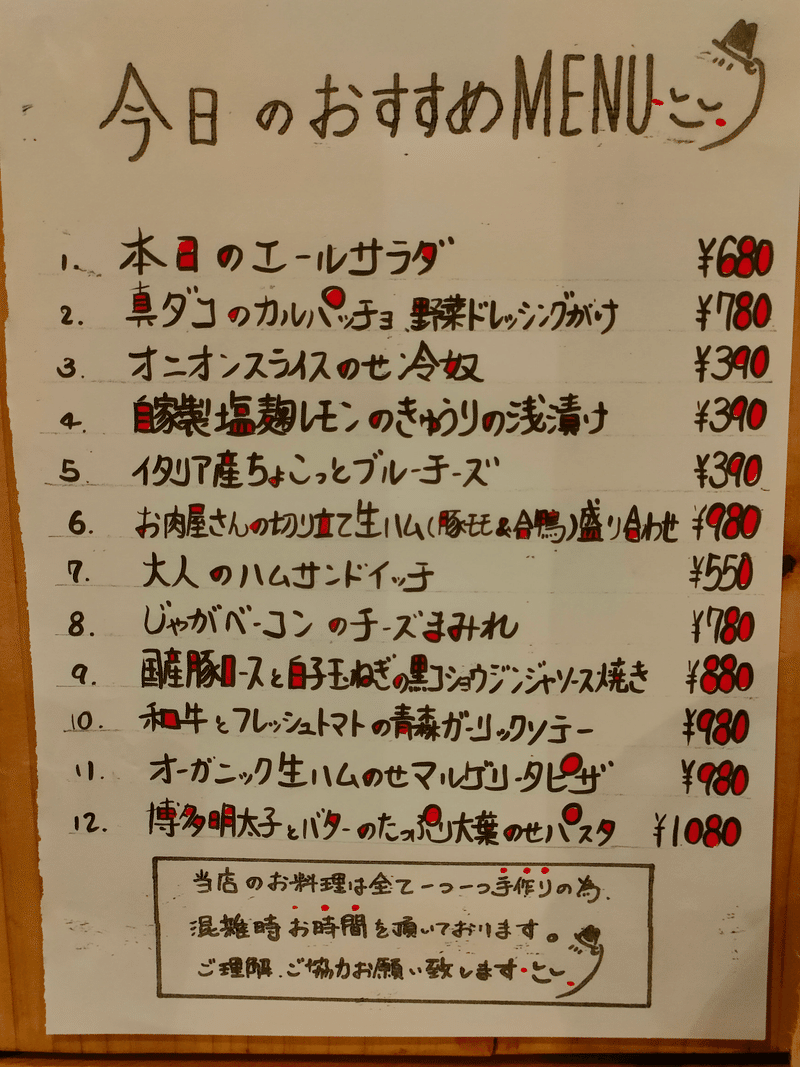 今日のおすすめMENU
1. 本日のエールサラダ ¥680
2. 真ダコのカルパッチョ 野菜ドレッシングがけ ¥780
3. オニオンスライスのせ冷奴 ¥390
4. 自家製塩麹レモンのきゅうりの浅漬け ¥390
5. イタリア産ちょこっとブルーチーズ ¥390
6. お肉屋さんの切り立て生ハム(豚モモ&合鴨)盛り合わせ ¥980
7. 大人のハムサンドイッチ ¥550
8. じゃがベーコンのチーズまみれ ¥780
9. 国産豚ロースと白子玉ねぎの黒コショウジンジャソース焼き ¥880
10. 和牛とフレッシュトマトの青森ガーリックソテー ¥980
11. オーガニック生ハムのせマルゲリータピザ ¥980
12. 博多明太子とバターのたっぷり大葉のせパスタ ¥1080
当店のお料理は全て一つ一つ手作りの為、
混雑時お時間を頂いております。
ご理解、ご協力お願い致します